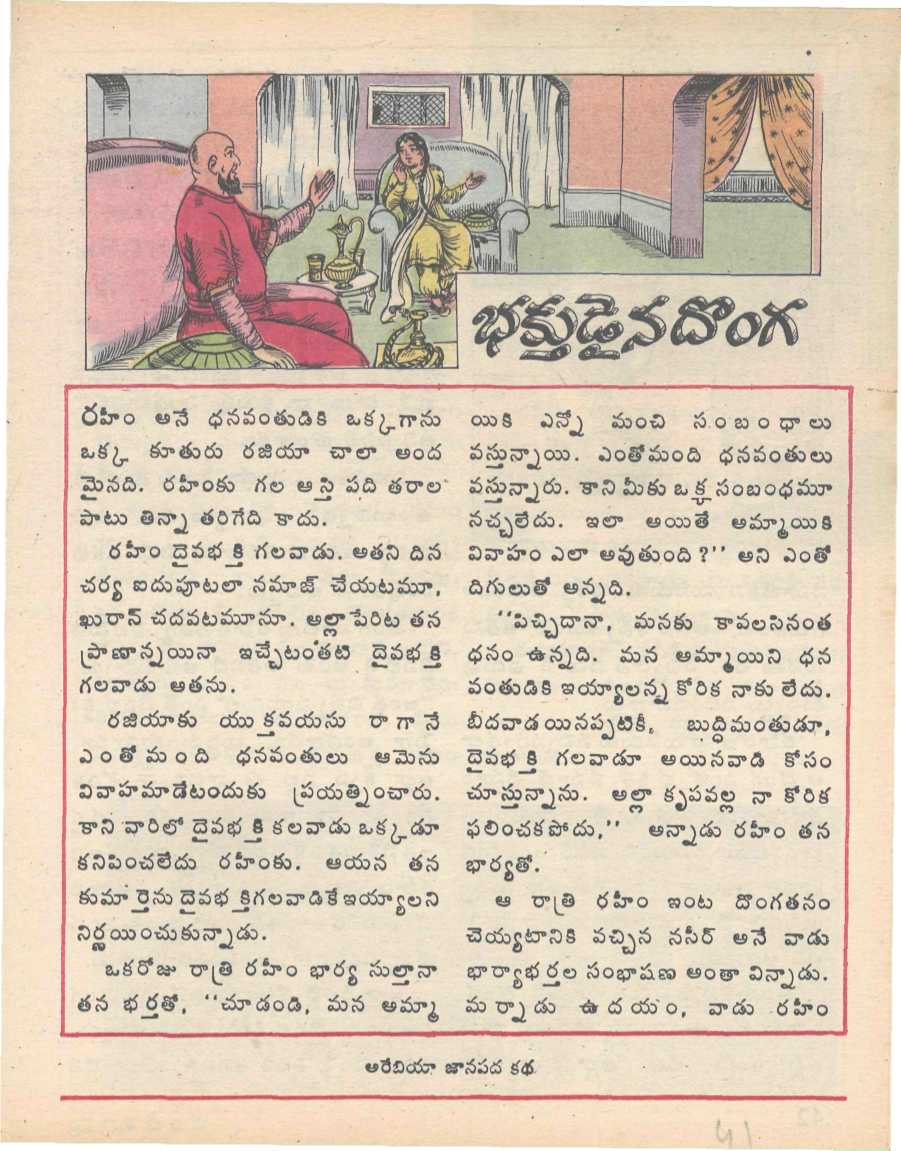 భక్తుడైనదొంగ
రహీం అనే ధనవంతుడికి ఒక్కగాను
ఒక్క కూతురు రజియా చాలా అంద
మైనది. రహీంకు గల ఆస్తి పది తరాల
పాటు తిన్నా తరిగేది కాదు.
రహీం దైవభక్తి గలవాడు. అతని దిన
చర్య ఐదుపూటలా నమాజ్ చేయటమూ,
ఖురాన్ చదవటమూనూ. అల్లా పేరిట తన
ప్రాణాన్నయినా ఇచ్చేటంతటి దైవభక్తి
గలవాడు అతను.
రజియాకు యుక్తవయసు రాగానే
ఎంతోమంది ధనవంతులు ఆమెను
వివాహమాడేటందుకు ప్రయత్నించారు.
కాని వారిలో దైవభక్తి కలవాడు ఒక్కడూ
కనిపించలేదు రహీంకు. ఆయన తన
కుమార్తెను దైవభక్తిగలవాడికే ఇయ్యాలని
నిర్ణయించుకున్నాడు.
ఒకరోజు రాత్రి రహీం భార్య సుల్తానా
తన భర్తతో, ‘‘చూడండి, మన అమ్మా
యికి ఎన్నో మంచి సంబంధాలు
వస్తున్నాయి. ఎంతోమంది ధనవంతులు
వస్తున్నారు. కాని మీకు ఒక్క సంబంధమూ
నచ్చలేదు. ఇలా అయితే అమ్మాయికి
వివాహం ఎలా అవుతుంది?’’ అని ఎంతో
దిగులుతో అన్నది.
‘‘పిచ్చిదానా, మనకు కావలసినంత
ధనం ఉన్నది. మన అమ్మాయిని ధన
వంతుడికి ఇయ్యాలన్న కోరిక నాకు లేదు.
బీదవాడయినప్పటికీ, బుద్ధిమంతుడూ,
దైవభక్తి గలవాడూ అయినవాడి కోసం
చూస్తున్నాను. అల్లా కృపవల్ల నా కోరిక
ఫలించకపోదు,’’ అన్నాడు రహీం తన
భార్యతో.
ఆ రాత్రి రహీం ఇంట దొంగతనం
చెయ్యటానికి వచ్చిన నసీర్ అనే వాడు
భార్యాభర్తల సంభాషణ అంతా విన్నాడు.
మర్నాడు ఉదయం, వాడు రహీం
అరేబియా జానపద కథ
41